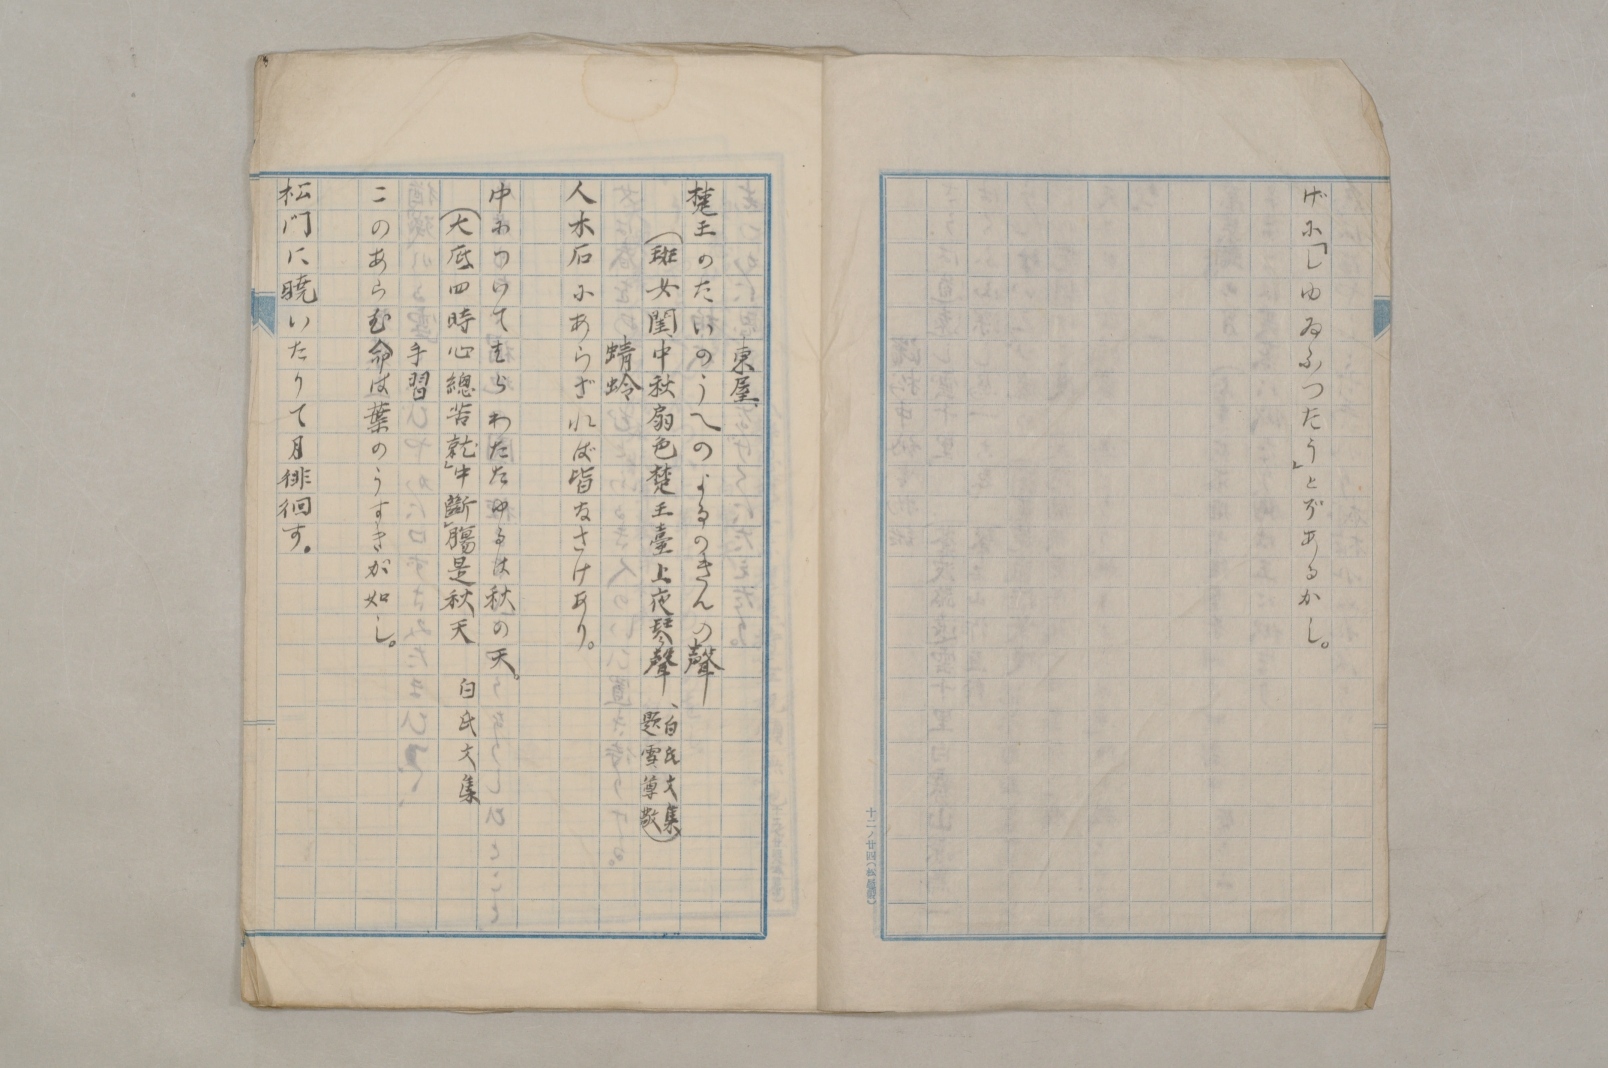 げに「しゆゐふつたう」とぞあるかし。
東屋
楚王のたいのうへのよるのきんの聲
(班女閨中秋扇色楚王臺上夜琴聲
、白氏文集
題雪尊敬)
蜻蛉
人木石にあらざればば皆なさけあり。
中わつけてもらわたたゆるは秋の天。
(大底四時心總苦就中斷腸是秋天　白氏文集
手習
このあらむ命は葉のうすきが如し。
松門に曉いたりて月徘徊す。